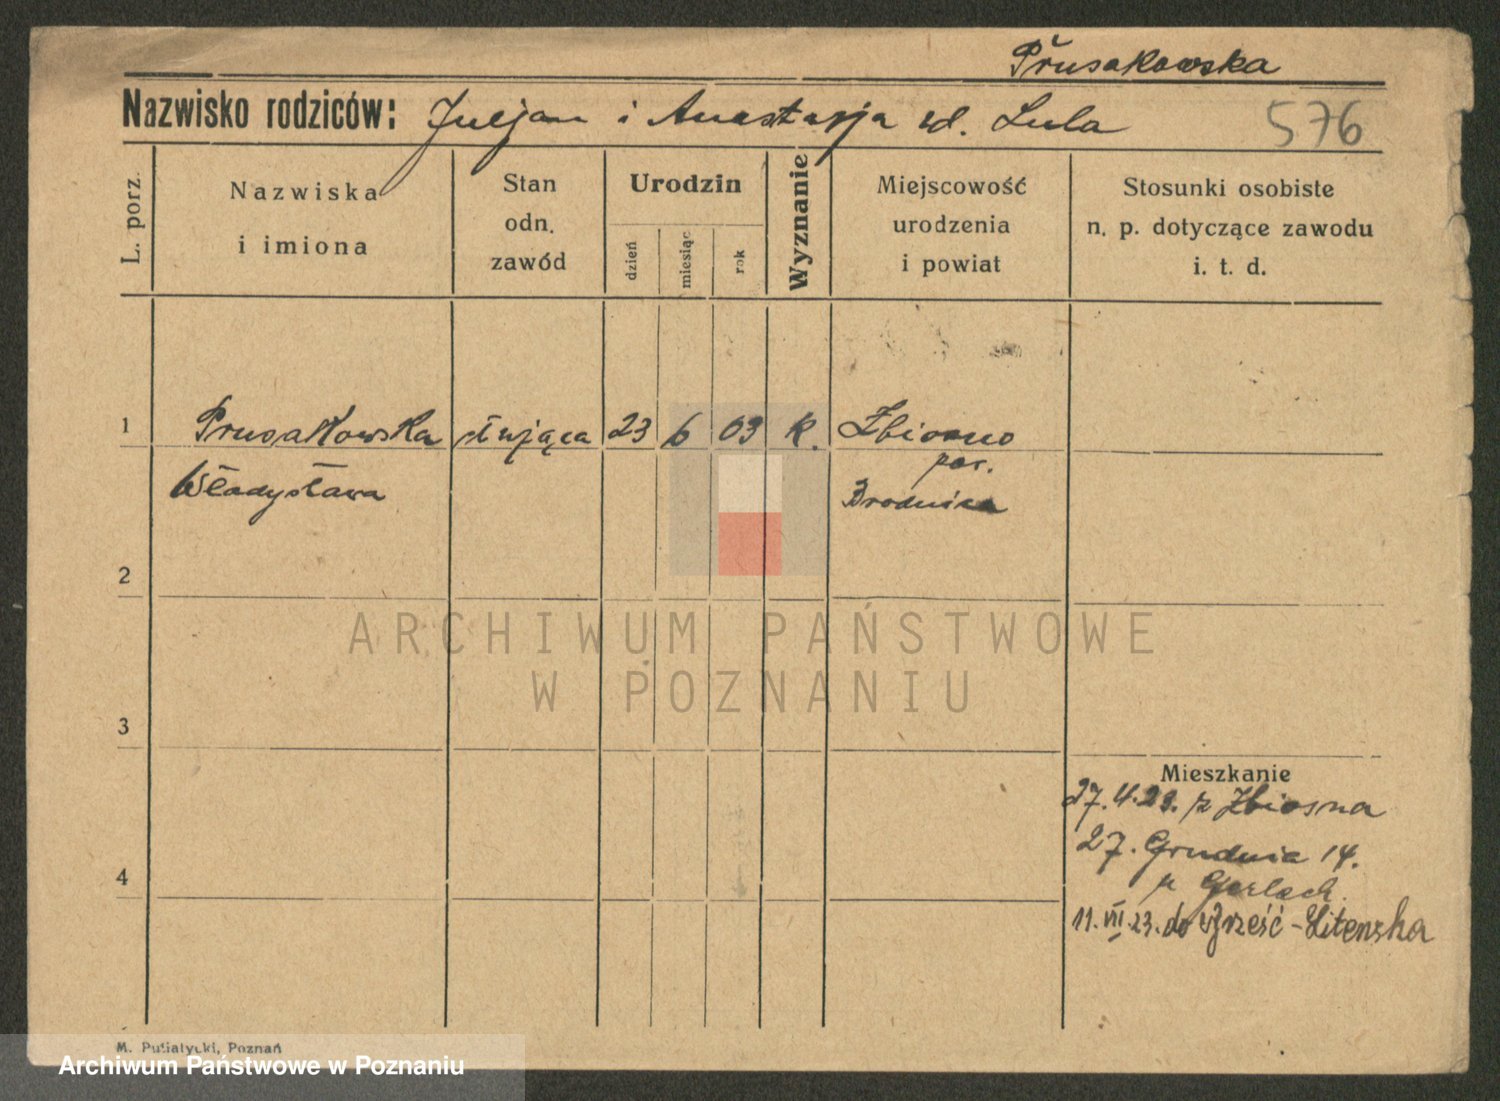 Prusakowska
Nazwisko rodziców: Juljan i Anastazja ur. Lula
576
L. porz.
Nazwiska
i imiona
Stan
odn.
zawód
Urodzin
dzień
miesiąc
rok
Wyznanie
Miejscowość
urodzenia
i powiat
Stosunki osobiste
n. p. dotyczące zawodu
i. t. d.
1 Prusakowska służąca 23 6 03 k. Zbiczno
pow.
Władysława Brodnica
2
3
4
ARCHIWUM PAŃSTWOWE
W POZNANIU
Mieszkanie
27.4.23. z Zbiczna
27. Grudnia 14.
Gerlach
11.VII.23. do Brześć-Litewska
M. Putiatycki, Poznań
Archiwum Państwowe w Poznaniu